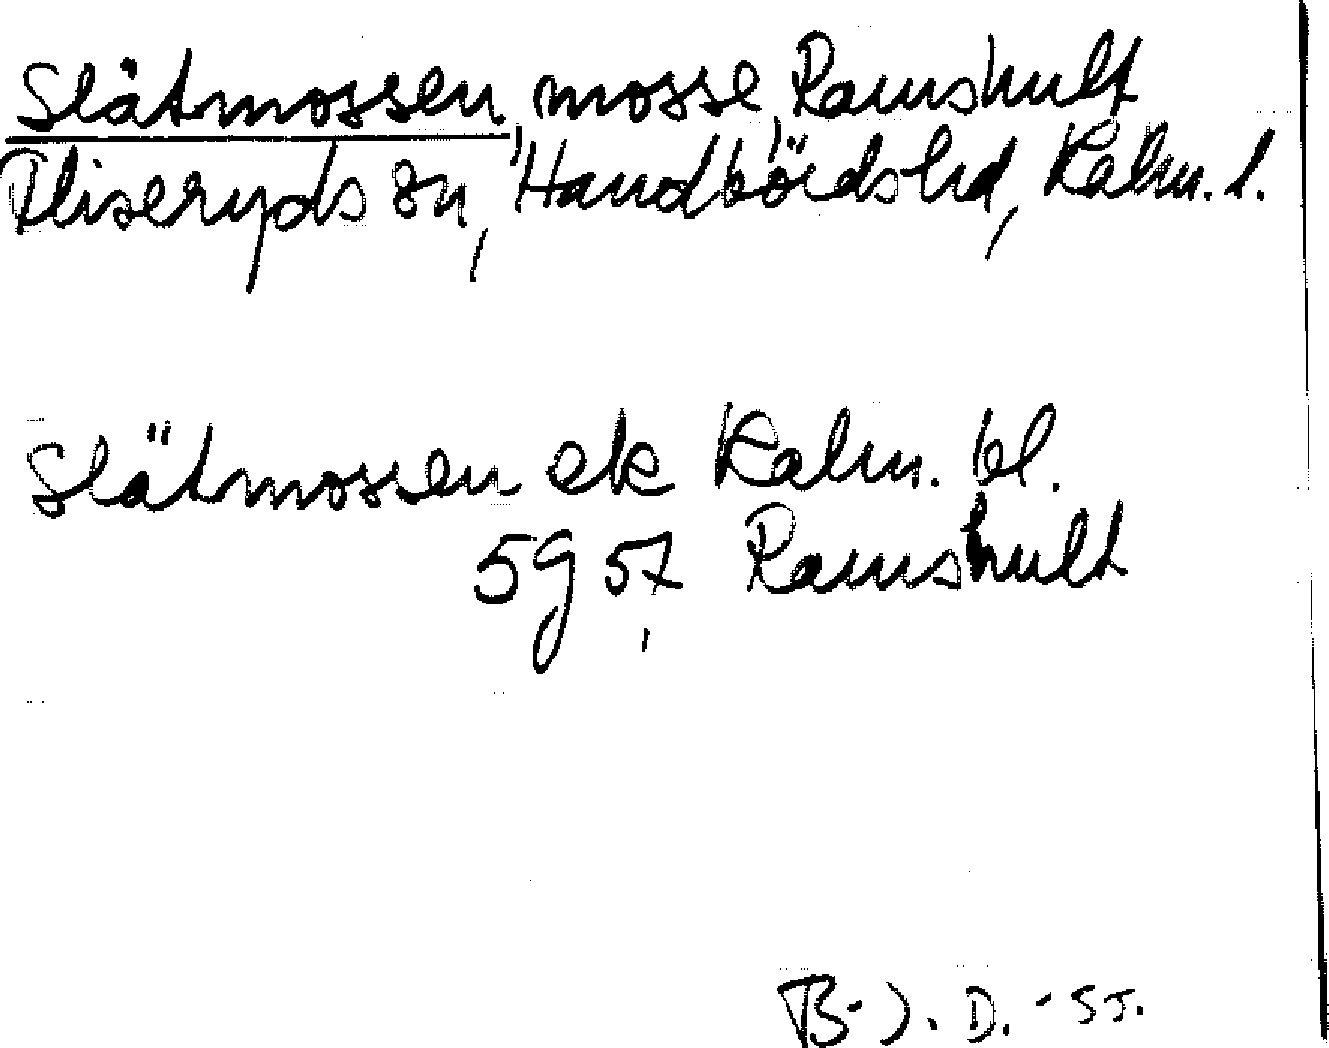 Slätmossen, mosse, Ramshult
Fliseryds sn, Handbörds hd, Kalm. l.
Slätmossen ek Kalm. bl.
5g 57, Ramshult
B-J. D.-SJ.